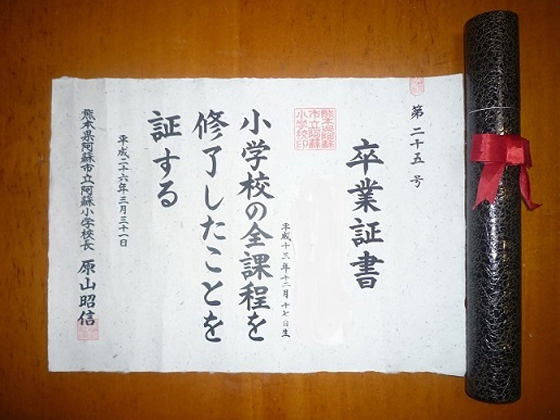 第二十五号
卒業証書
熊本県阿蘇
市立阿蘇
小学校印
平成十三年十二月十七日生
小学校の全課程を
修了したことを
証する
平成二十六年三月三十一日
熊本県阿蘇市立阿蘇小学校長 原山昭信